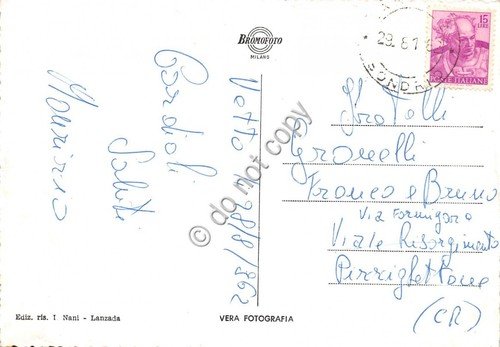 BROMOFOTO
MILANO
15
LIRE
POSTE ITALIANE
29.8.1
SONDR
Votto 28/8/962
Cordiali
Saluti
Maurizio
Fratelli
Gronelli
Franco e Bruno
Via Formigara
Viale Risorgimento
Pizzighettone
(CR)
do not copy
Ediz. ris. I Nani - Lanzada
VERA FOTOGRAFIA